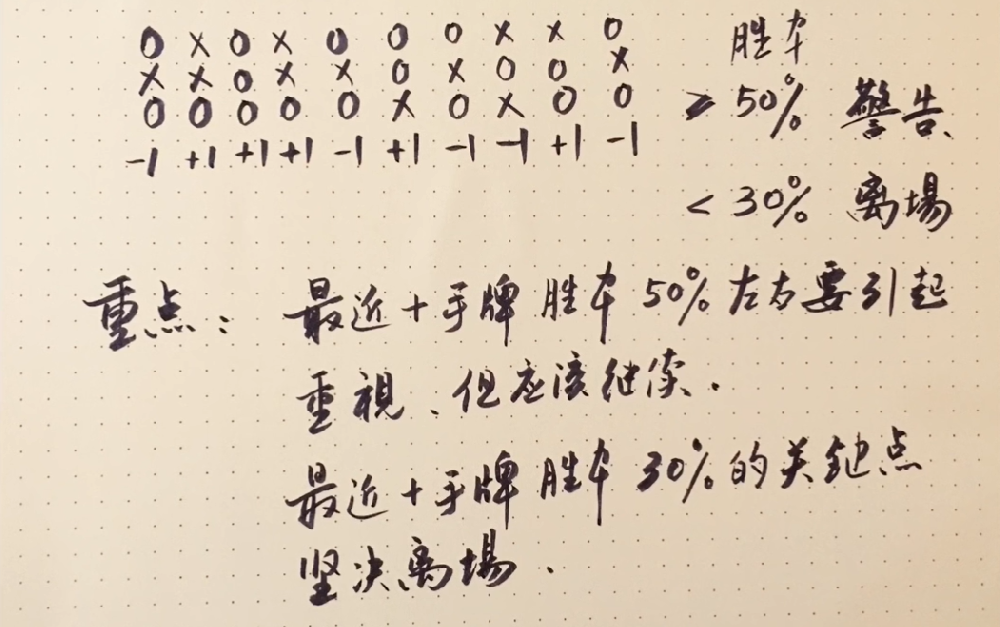 O X O X O O O X X O 胜率
X X O X X O X O O X
O O O O O X O X O O ≥ 50% 警告
-1 +1 +1 +1 -1 +1 -1 -1 +1 -1
< 30% 离場
重点: 最近十手牌 胜率 50% 左右要引起
重視、但应该继续.
最近十手牌 胜率 30% 的关键点
坚决离場.